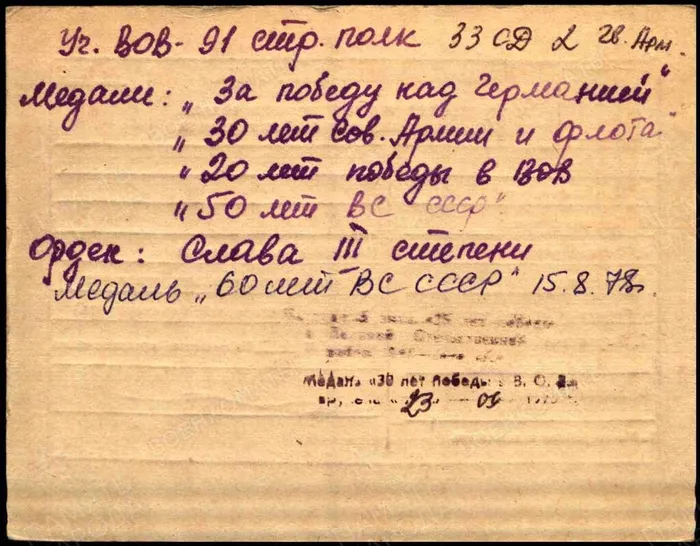 Уч. ВОВ - 91 стр. полк 33 СД 2 28. Арм.
Медали: „За победу над Германией"
„30 лет Сов. Армии и флота"
„20 лет победы в ВОВ
„50 лет ВС СССР"
Орден: Слава III степени
Медаль „60 лет ВС СССР" 15.8.78г.
«25 лет победы
в Великой Отечественной
войне
Медаль «30 лет Победы в В. О. В.»
23 — 09 —